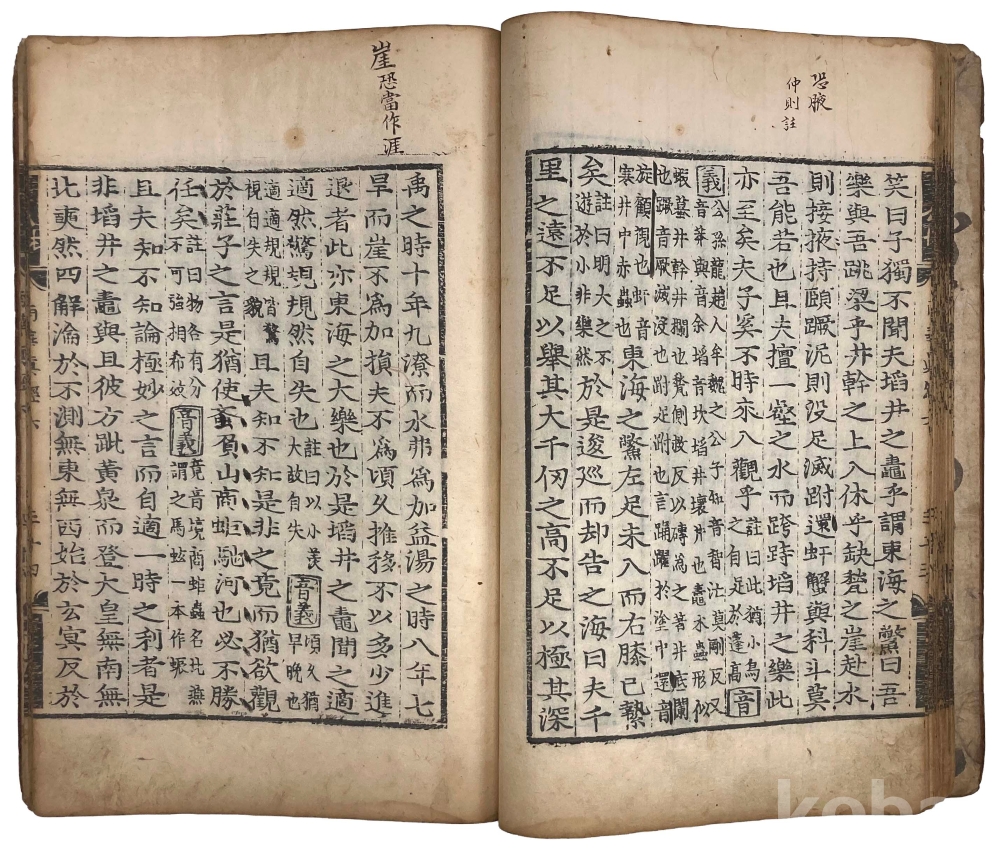 恐腋
仲則註
笑曰子獨不聞夫埳井之鼃乎謂東海之鱉曰吾
樂與吾跳梁乎井幹之上入休乎缺甃之崖赴水
則接掖持頤蹶泥則没足滅跗還虷蟹與科斗莫
吾能若也且夫擅一壑之水而跨跱埳井之樂此
亦至矣夫子奚不時來入觀乎註曰此猶小為之自足於蓬高音
義公孫龍趙人牟魏之公子知音智汒莫剛反又
音莽與音余埳音坎埳井壞井也鼃水蟲形似
蝦蟇井幹井欄也甃側救反以磚為之著井底闌
也蹶音厥滅没也跗足跗也言踊躍於塗中還音
旋顧視也虷音寒井中赤蟲也東海之鱉左足未入而右膝已縶
矣註曰明大之不遊於小非樂然於是逡巡而却告之海曰夫千
里之遠不足以舉其大千仞之高不足以極其深
崖恐當作涯
禹之時十年九潦而水弗為加益湯之時八年七
旱而崖不為加損夫不為頃久推移不以多少進
退者此亦東海之大樂也於是埳井之鼃聞之適
適然驚規規然自失也註曰以小羡大故自失音義頃久猶早晚也
適適規規皆驚視自失之貌且夫知不知是非之竟而猶欲觀
於莊子之言是猶使蚉負山商蚷馳河也必不勝
任矣註曰物各有分不可強相希效音義竟音境商蚷蟲名北燕謂之馬蚿一本作蜄
且夫知不知論極妙之言而自適一時之利者是
非埳井之鼃與且彼方跐黃泉而登大皇無南無
北奭然四解淪於不測無東無西始於玄冥反於